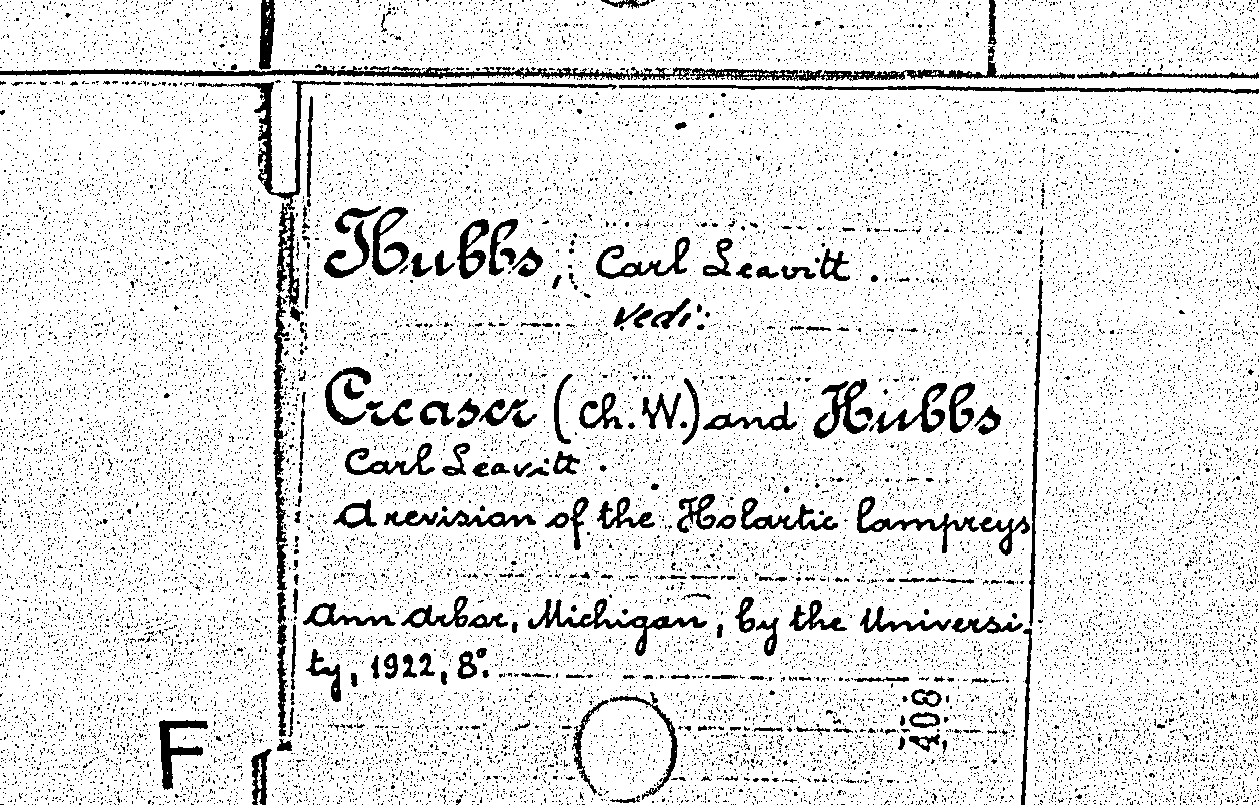 Hubbs, Carl Leavitt.
vedi:
Creaser (Ch. W.) and Hubbs
Carl Leavitt.
A revision of the Holartic lampreys
Ann Arbor, Michigan, by the Universi-
ty, 1922, 8°.
408
F